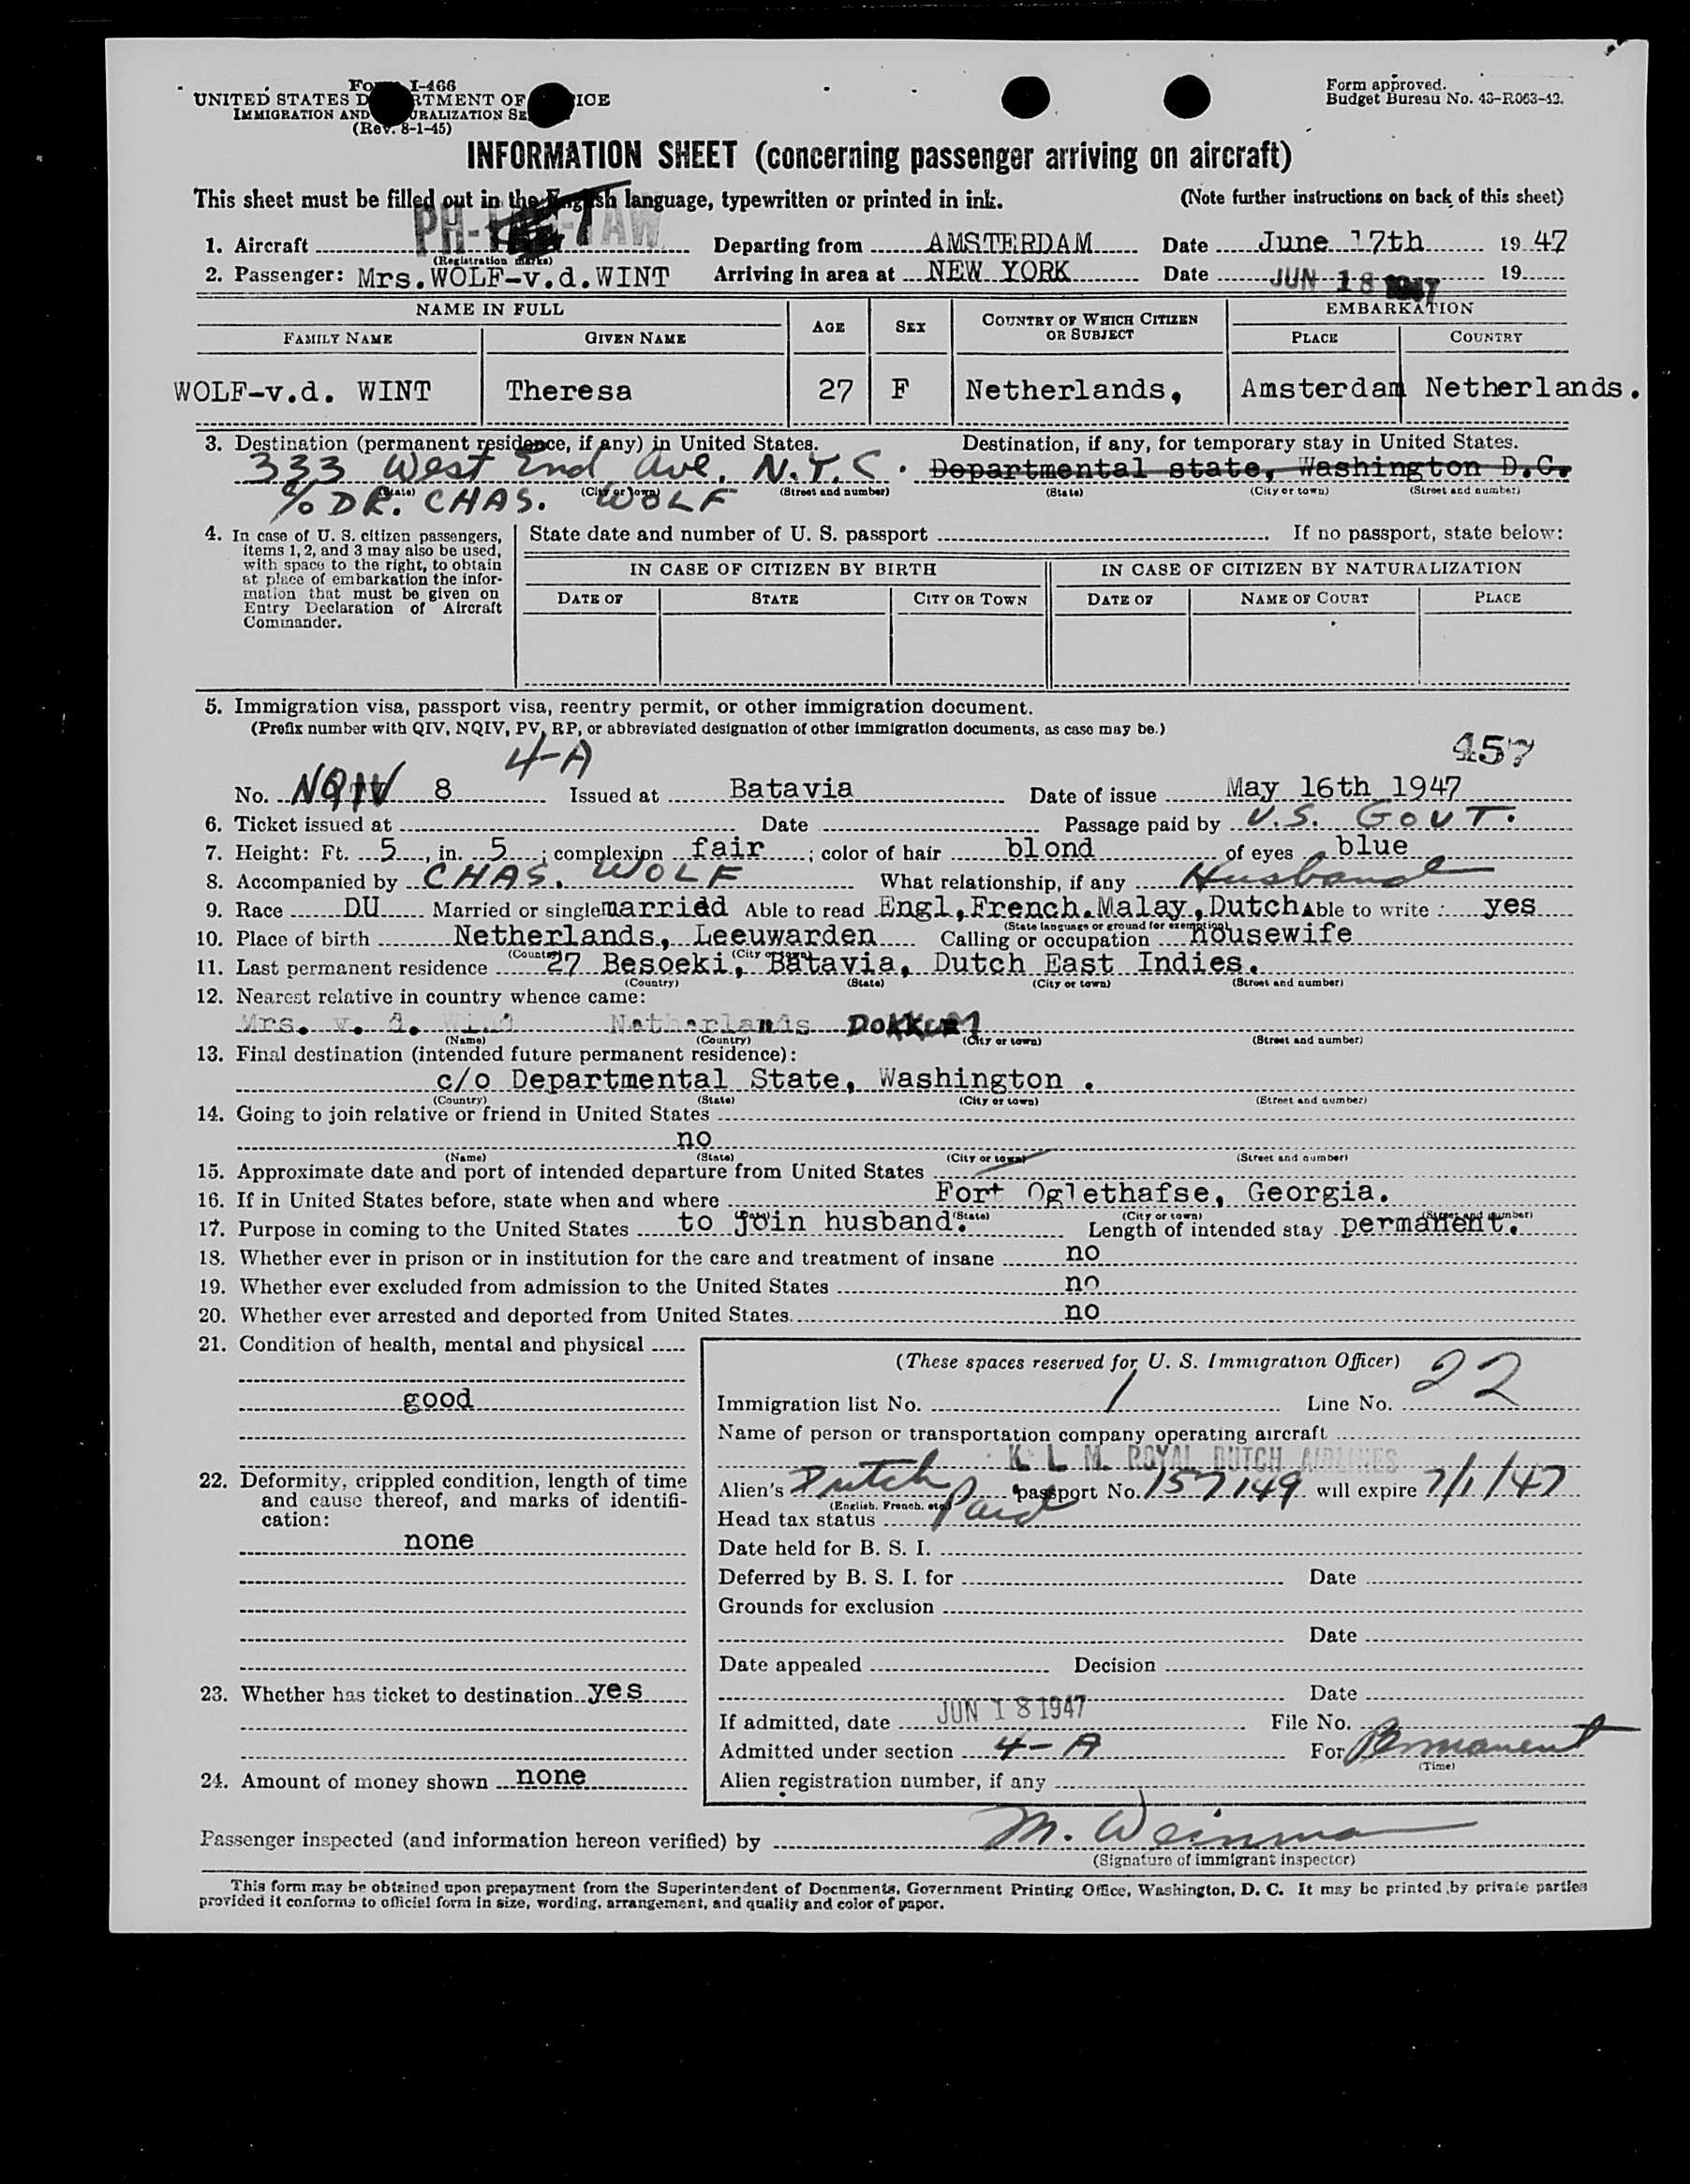 Form I-466
UNITED STATES DEPARTMENT OF JUSTICE
IMMIGRATION AND NATURALIZATION SERVICE
(Rev. 8-1-45)
Form approved.
Budget Bureau No. 43-R063-42.
INFORMATION SHEET (concerning passenger arriving on aircraft)
This sheet must be filled out in the English language, typewritten or printed in ink. (Note further instructions on back of this sheet)
1. Aircraft PH- TAW Departing from AMSTERDAM Date June 17th 1947
(Registration marks)
2. Passenger: Mrs. WOLF-v.d. WINT Arriving in area at NEW YORK Date JUN 18 1947 19
NAME IN FULL AGE SEX COUNTRY OF WHICH CITIZEN OR SUBJECT EMBARKATION
FAMILY NAME GIVEN NAME PLACE COUNTRY
WOLF-v.d. WINT Theresa 27 F Netherlands, Amsterdam Netherlands.
3. Destination (permanent residence, if any) in United States. Destination, if any, for temporary stay in United States.
333 West End Ave. N.Y.C. Departmental state, Washington D.C.
(State) (City or town) (Street and number) (State) (City or town) (Street and number)
c/o DR. CHAS. WOLF
4. In case of U. S. citizen passengers, items 1, 2, and 3 may also be used, with space to the right, to obtain at place of embarkation the information that must be given on Entry Declaration of Aircraft Commander.
State date and number of U. S. passport If no passport, state below:
IN CASE OF CITIZEN BY BIRTH IN CASE OF CITIZEN BY NATURALIZATION
DATE OF STATE CITY OR TOWN DATE OF NAME OF COURT PLACE
5. Immigration visa, passport visa, reentry permit, or other immigration document.
(Prefix number with QIV, NQIV, PV, RP, or abbreviated designation of other immigration documents, as case may be.)
4-A 457
No. NQIV 8 Issued at Batavia Date of issue May 16th 1947
6. Ticket issued at Date Passage paid by U.S. GOVT.
7. Height: Ft. 5, in. 5; complexion fair; color of hair blond of eyes blue
8. Accompanied by CHAS. WOLF What relationship, if any Husband
9. Race DU Married or single married Able to read Engl, French. Malay, Dutch Able to write yes
(State language or ground for exemption)
10. Place of birth Netherlands, Leeuwarden Calling or occupation housewife
(Country) (City or town)
11. Last permanent residence 27 Besoeki, Batavia, Dutch East Indies.
(Country) (State) (City or town) (Street and number)
12. Nearest relative in country whence came:
Mrs. v. d. Wint Netherlands DOKKUM
(Name) (Country) (City or town) (Street and number)
13. Final destination (intended future permanent residence):
c/o Departmental State, Washington .
(Country) (State) (City or town) (Street and number)
14. Going to join relative or friend in United States
no
(Name) (State) (City or town) (Street and number)
15. Approximate date and port of intended departure from United States
16. If in United States before, state when and where Fort Oglethafse, Georgia.
(Date) (State) (City or town) (Street and number)
17. Purpose in coming to the United States to join husband. Length of intended stay permanent.
18. Whether ever in prison or in institution for the care and treatment of insane no
19. Whether ever excluded from admission to the United States no
20. Whether ever arrested and deported from United States. no
21. Condition of health, mental and physical
good
22. Deformity, crippled condition, length of time and cause thereof, and marks of identification:
none
23. Whether has ticket to destination yes
24. Amount of money shown none
(These spaces reserved for U. S. Immigration Officer)
Immigration list No. 1 Line No. 22
Name of person or transportation company operating aircraft
K. L. M. ROYAL DUTCH AIRLINES
Alien's Dutch passport No. 157149 will expire 7/1/47
(English, French, etc.)
Head tax status Paid
Date held for B. S. I.
Deferred by B. S. I. for Date
Grounds for exclusion
Date
Date appealed Decision
Date
If admitted, date JUN 18 1947 File No.
Admitted under section 4-A For Permanent
(Time)
Alien registration number, if any
Passenger inspected (and information hereon verified) by M. Weinman
(Signature of immigrant inspector)
This form may be obtained upon prepayment from the Superintendent of Documents, Government Printing Office, Washington, D. C. It may be printed by private parties
provided it conforms to official form in size, wording, arrangement, and quality and color of paper.